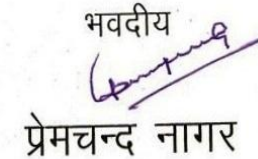 भवदीय
प्रेमचन्द नागर